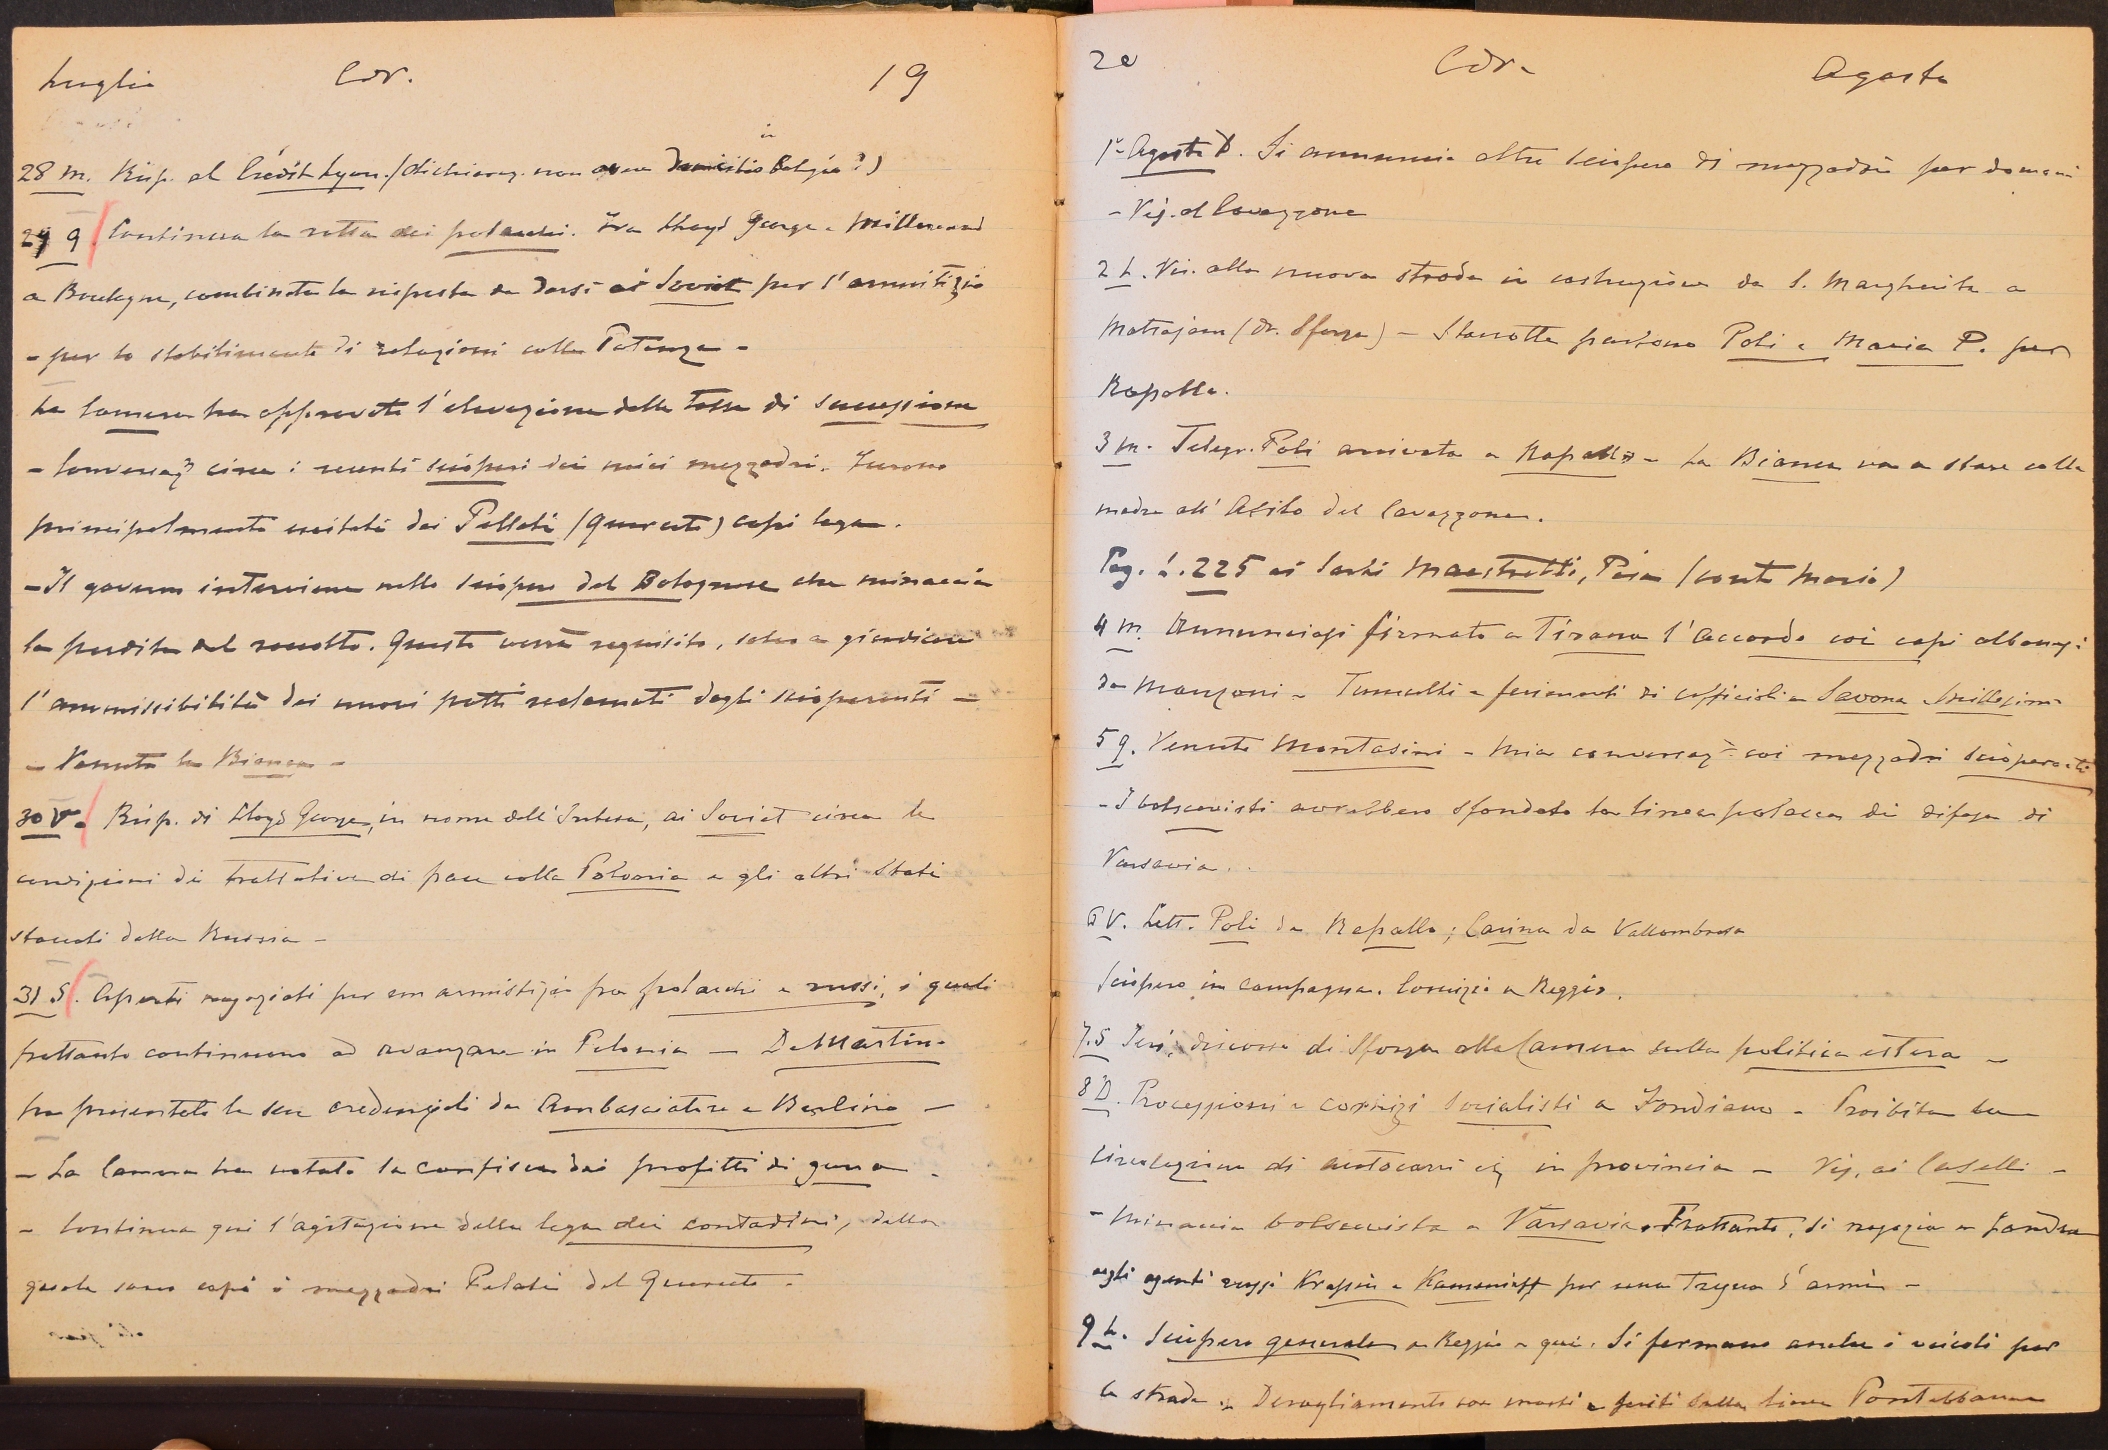 Luglio Cor. 19
28 m. Risp. al Crédit Lyon. (dichiaraz. non avere domicilio in Belgio?)
29 g. Continua la rotta dei polacchi. Fra Lloyd George e Millerand
a Boulogne, combinata la risposta da darsi ai Soviet per l'armistizio
- per lo stabilimento di relazioni colle Potenze -
La Camera ha approvato l'elevazione delle tasse di successione
- Conversaz.ⁿ circa i recenti scioperi dei miei mezzadri. Furono
principalmente eccitati dai Pellati (Querceto) capi lega.
- Il governo interviene nello sciopero del Bolognese che minaccia
la perdita del raccolto. Questo verrà requisito, salvo a giudicare
l'ammissibilità dei nuovi patti reclamati dagli scioperanti -
- Venuta la Bianca -
30 V. Risp. di Lloyd George, in nome dell'Intesa, ai Soviet circa le
condizioni di trattative di pace colla Polonia e gli altri Stati
staccati dalla Russia -
31 S. Aperti negoziati per un armistizio fra polacchi e russi, i quali
frattanto continuano ad avanzare in Polonia — De Martino
ha presentato le sue credenziali da Ambasciatore a Berlino —
- La Camera ha votato la confisca dei profitti di guerra -
- Continua qui l'agitazione della lega dei contadini, della
quale sono capi i mezzadri Pelati del Querceto -
20 Cor. Agosto
1° Agosto D. Si annuncia altro sciopero di mezzadri per domani
- Vis. al Cavazzone
2 L. Vis. alla nuova strada in costruzione da S. Margherita a
(Dr. Sforza) - Stanotte partono Poli e Maria P. per
Rapallo.
3 m. Telegr. Poli arrivata a Rapallo - La Bianca va a stare colla
madre all'Asilo del Cavazzone.
Pag. £. 225 ai Maestretti, Pisa (conto Mario)
4 m. Annunciasi firmato a Tirana l'accordo coi capi albanesi
da Manzoni - Tumulti e ferimenti di ufficiali a Savona
5 g. Venuto Montasini - Mia conversaz.ⁿᵉ coi mezzadri scioperanti
- I bolscevisti avrebbero sfondato la linea polacca di difesa di
Varsavia..
6 V. Lett. Poli da Rapallo; Carina da Vallombrosa
Sciopero in campagna. Comizio a Reggio.
7. S Ieri, discorso di Sforza alla Camera sulla politica estera -
8 D. Processioni e comizi socialisti a Fondiano - Proibita la
circolazione di autocarri etc in provincia - Vis. ai Caselli -
- Minaccia bolscevista a Varsavia. Frattanto, si negozia a Londra
cogli agenti russi Krassin e Kameneff per una tregua d'armi -
9 L. Sciopero generale a Reggio e qui. Si fermano anche i veicoli per
la strada - Deragliamento con morti e feriti sulla linea Pontebbana